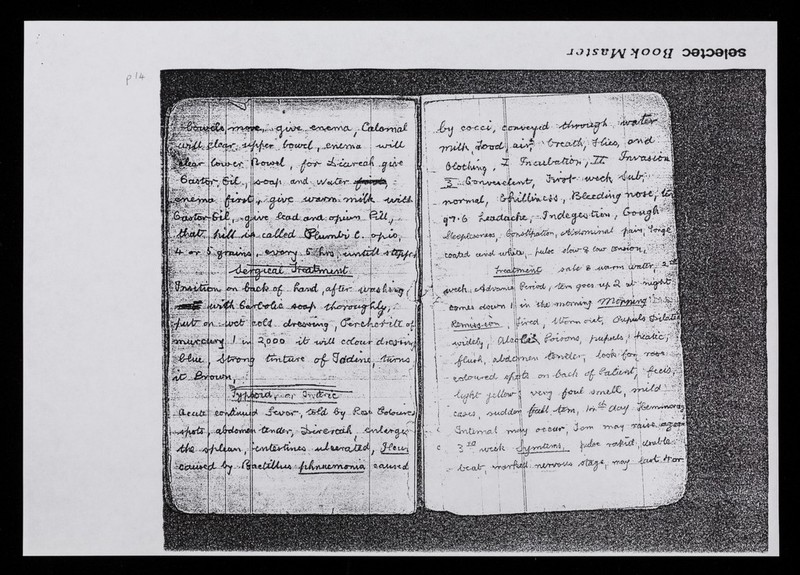 selectec Book Master
p14
bowels move, give enema, Calomal
will clear upper bowel, enema will
clear lower Bowel, for Diareah give
Castor Oil, soap and water
enema first, give warm milk with
Castor Oil, give lead and opium Pill,
that pill is called Plumbi C. opio,
4 or 5 grains, every 6 hrs, untill stopped
Sergical Treatment
Insition on back of hand, after washing
with Carbolic soap thoroughly,
put on wet cold dressing, Perchorite of
murcury 1 in 2,000 it will colour dressing
blue. Strong tinture of Iodine, turns
it Brown,
Typhoid, or Enteric
Acute continued Fevor, told by Rose Coloured
spots, abdomen tender, Direreah, enlarge
the splean, entestines ulserated,
caused by Bacillus phnuemonia caused
by cocci, conveyed through water
milk, food, air, breath, flies, and
Clothing, I Incubation, II Invasion
3 Convesclent, First week Sub,
normal, Chilliness, Bleeding nose,
97.6 headache, Indegestion, Cough
Sleeplesness, Constipation, abdominal pain, tonge
coated and white, pulse slow & low tension,
Treatment salt & warm water, 2nd
week, Advance Period, tem goes up 2 at night
comes down 1 in the morning Morning
Remission, tired, worn out, Pupils Dilate
widely, Poisons, pupuls, heatic,
flush, abdomen tender, look for rose
coloured spots on back of Patient, feeis,
light yellow, very foul smell, mild
cases, sudden fall tem, 14th day Heminorag
Internal may occur, Tem may raise again
3rd week Symtims, pulse rapid, double
beat, marked nervous stage, may last